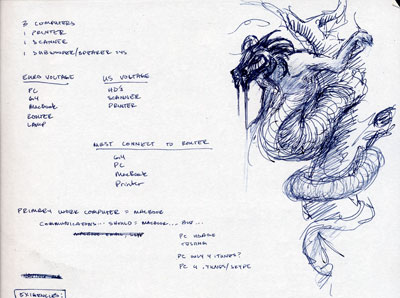 3 COMPUTERS
1 PRINTER
1 SCANNER
1 SUBWOOFER/SPEAKER SYS
EURO VOLTAGE
US VOLTAGE
PC
HD'S
G4
SCANNER
MACBOOK
PRINTER
ROUTER
LAMP
MUST CONNECT TO ROUTER
G4
PC
MACBOOK
PRINTER
PRIMARY WORK COMPUTER = MACBOOK
COMMUNICATIONS... SHOULD = MACBOOK... BUT...
PC
PC ONLY 4 ITUNES?
PC 4 ITUNES/SKYPE
EXIGENCIES: